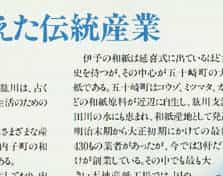 えた伝統産業
伊予の和紙は延喜式に出ているほど
史を持つが、その中心が五十崎町の大
紙である。五十崎町はコウゾ、ミツマタ、が
どの和紙原料が近辺に自生し、肱川支流
田川の水にも恵まれ、和紙産地として発
明治末期から大正初期にかけての最
430もの業者があったが、今では3軒だ
けが創業している。その中でも最も大
きい天神産紙工場では、国の
肱川は、古く
生活のための
さまざまな産
内子町の和